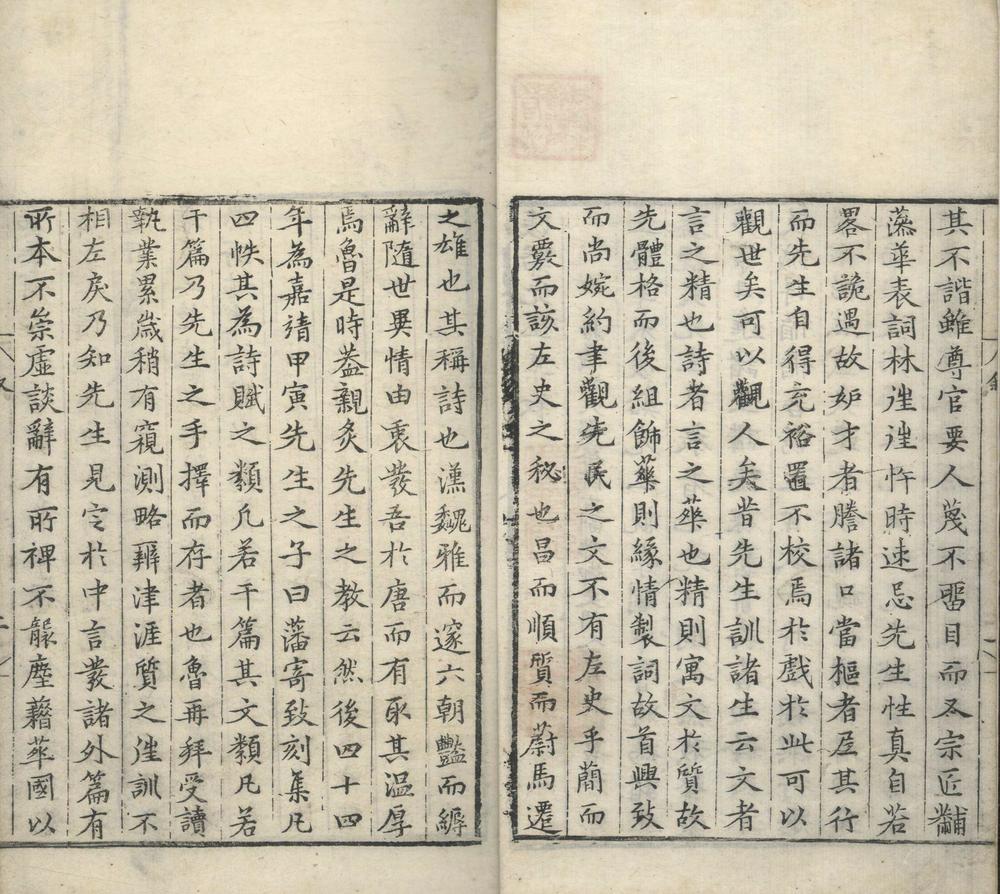 其不諧雖尊官要人蔑不畱目而又宗匠黼
藻華表詞林徃徃忤時速忌先生性真自若
畧不詭遇故妒才者騰諸口當樞者疐其行
而先生自得充裕置不校焉於戲於此可以
觀世矣可以觀人矣昔先生訓諸生云文者
言之精也詩者言之華也精則寓文於質故
先體格而後組飾華則緣情製詞故首興致
而尚婉約聿觀先民之文不有左史乎蕑而
文覈而該左史之秘也昌而順質而蔚馬遷
之雄也其稱詩也漢魏雅而邃六朝豔而縟
辭隨世異情由衷發吾於唐而有取其溫厚
焉魯是時蓋親炙先生之教云然後四十四
年為嘉靖甲寅先生之子曰藩寄致刻集凡
四帙其為詩賦之類凡若干篇其文類凡若
干篇乃先生之手擇而存者也魯再拜受讀
執業累歲稍有窺測略辨津涯質之徃訓不
相左戾乃知先生見定於中言發諸外篇有
所本不崇虛談辭有所裨不龎塵藉華國以